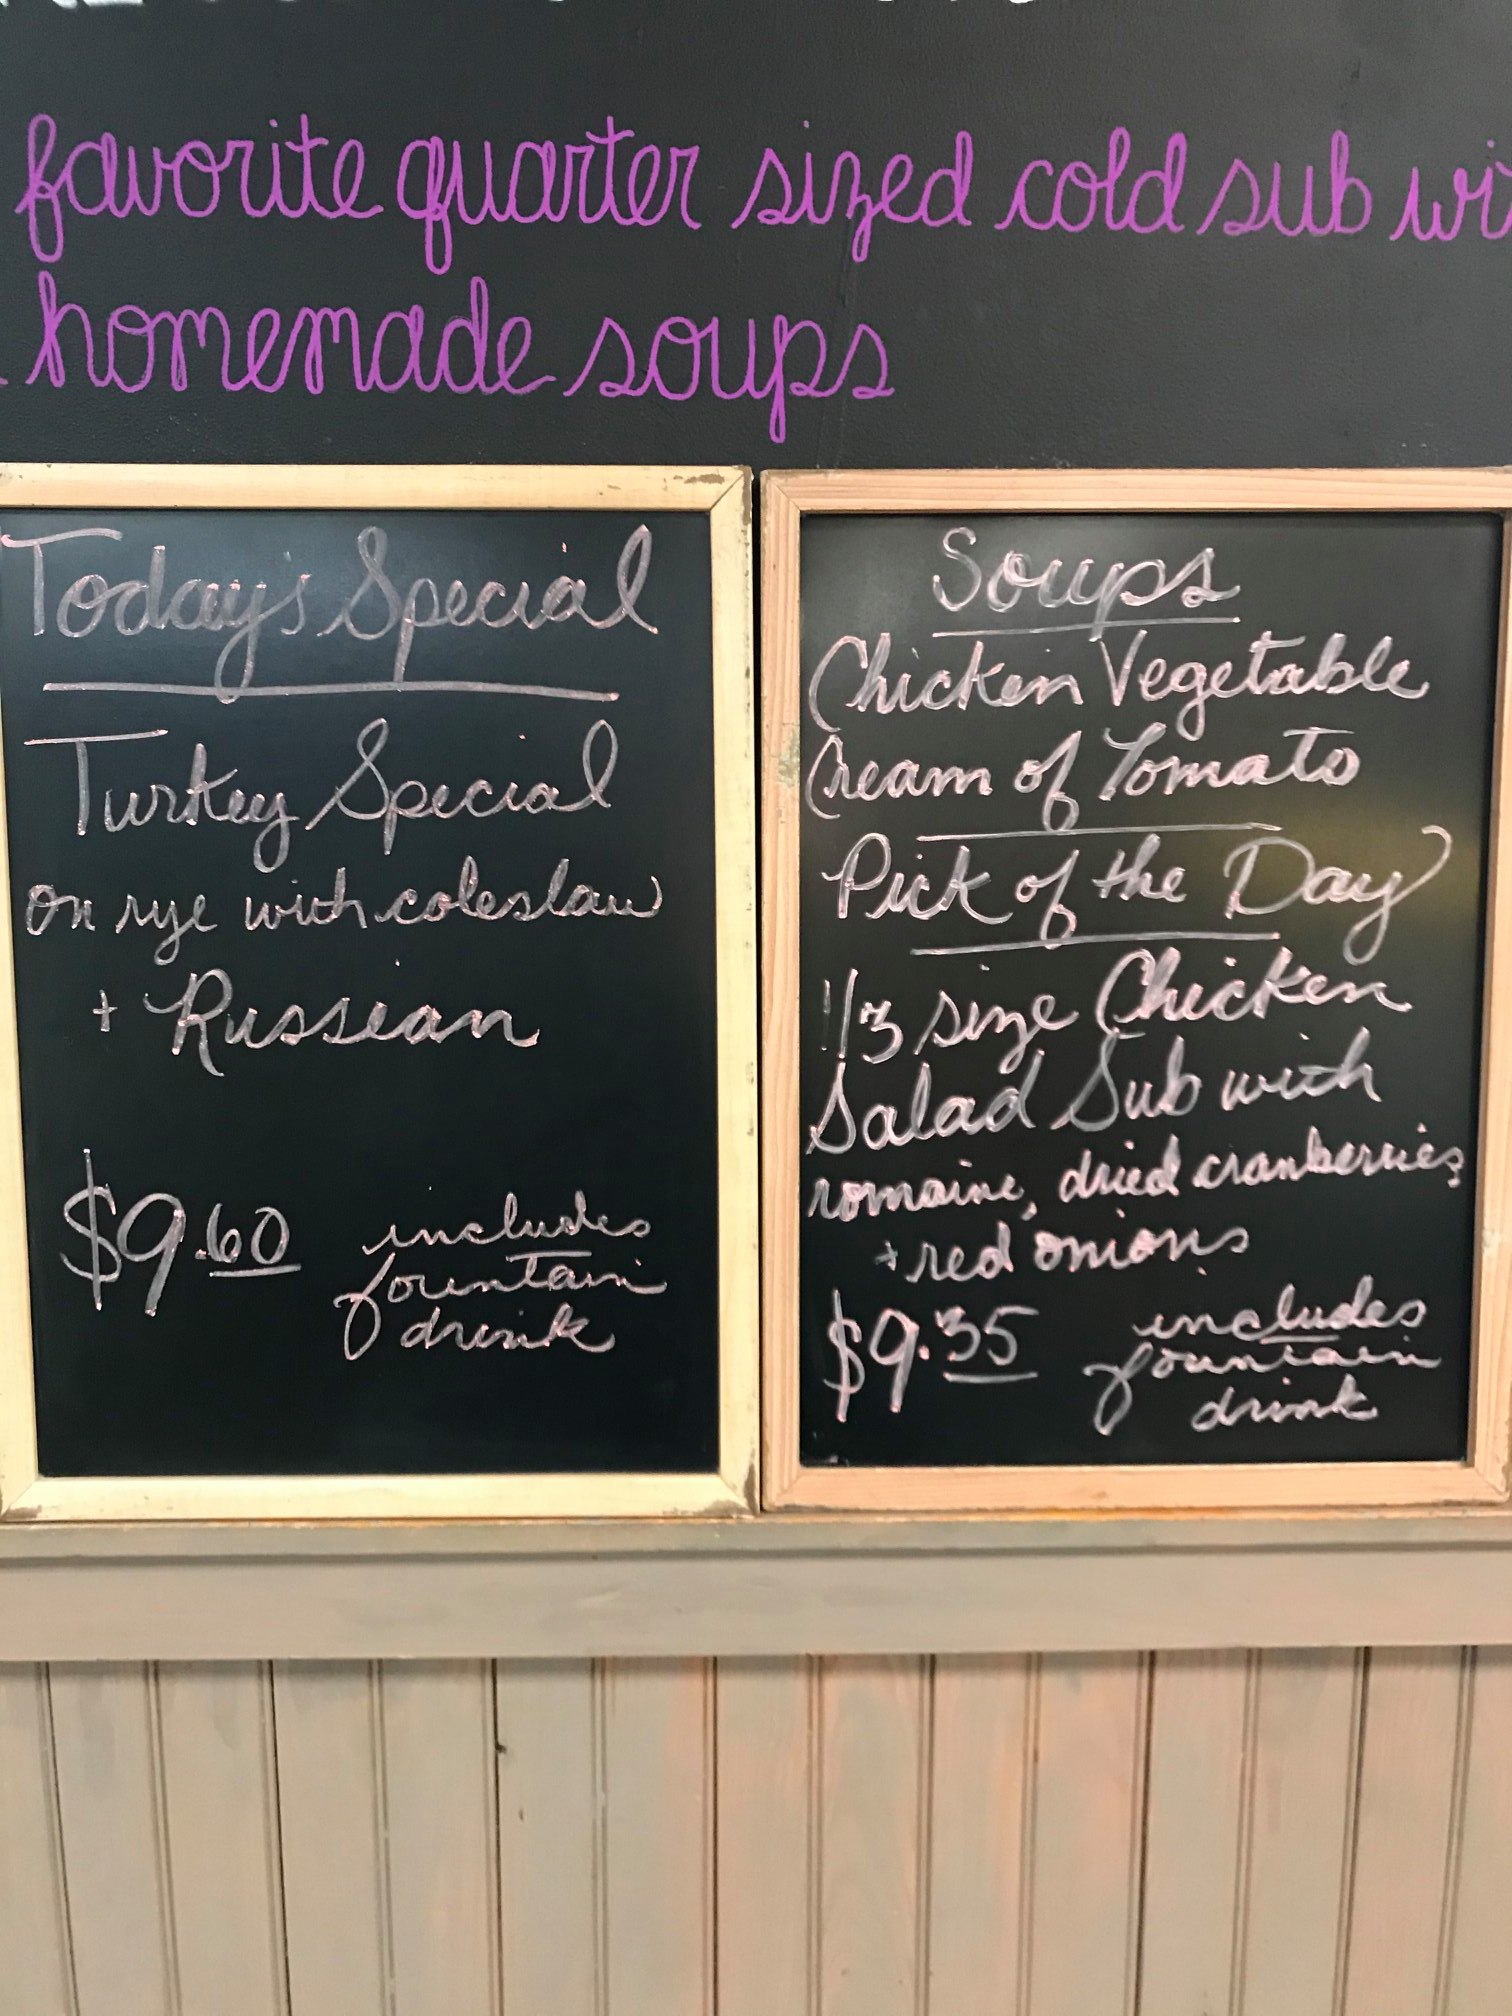 favorite quarter sized cold sub wi
homemade soups
Today's Special
Turkey Special
on rye with coleslaw
+ Russian
$9.60
includes
fountain
drink
Soups
Chicken Vegetable
Cream of Tomato
Pick of the Day
1/3 size Chicken
Salad Sub with
romaine, dried cranberries,
+ red onions
$9.35
includes
fountain
drink